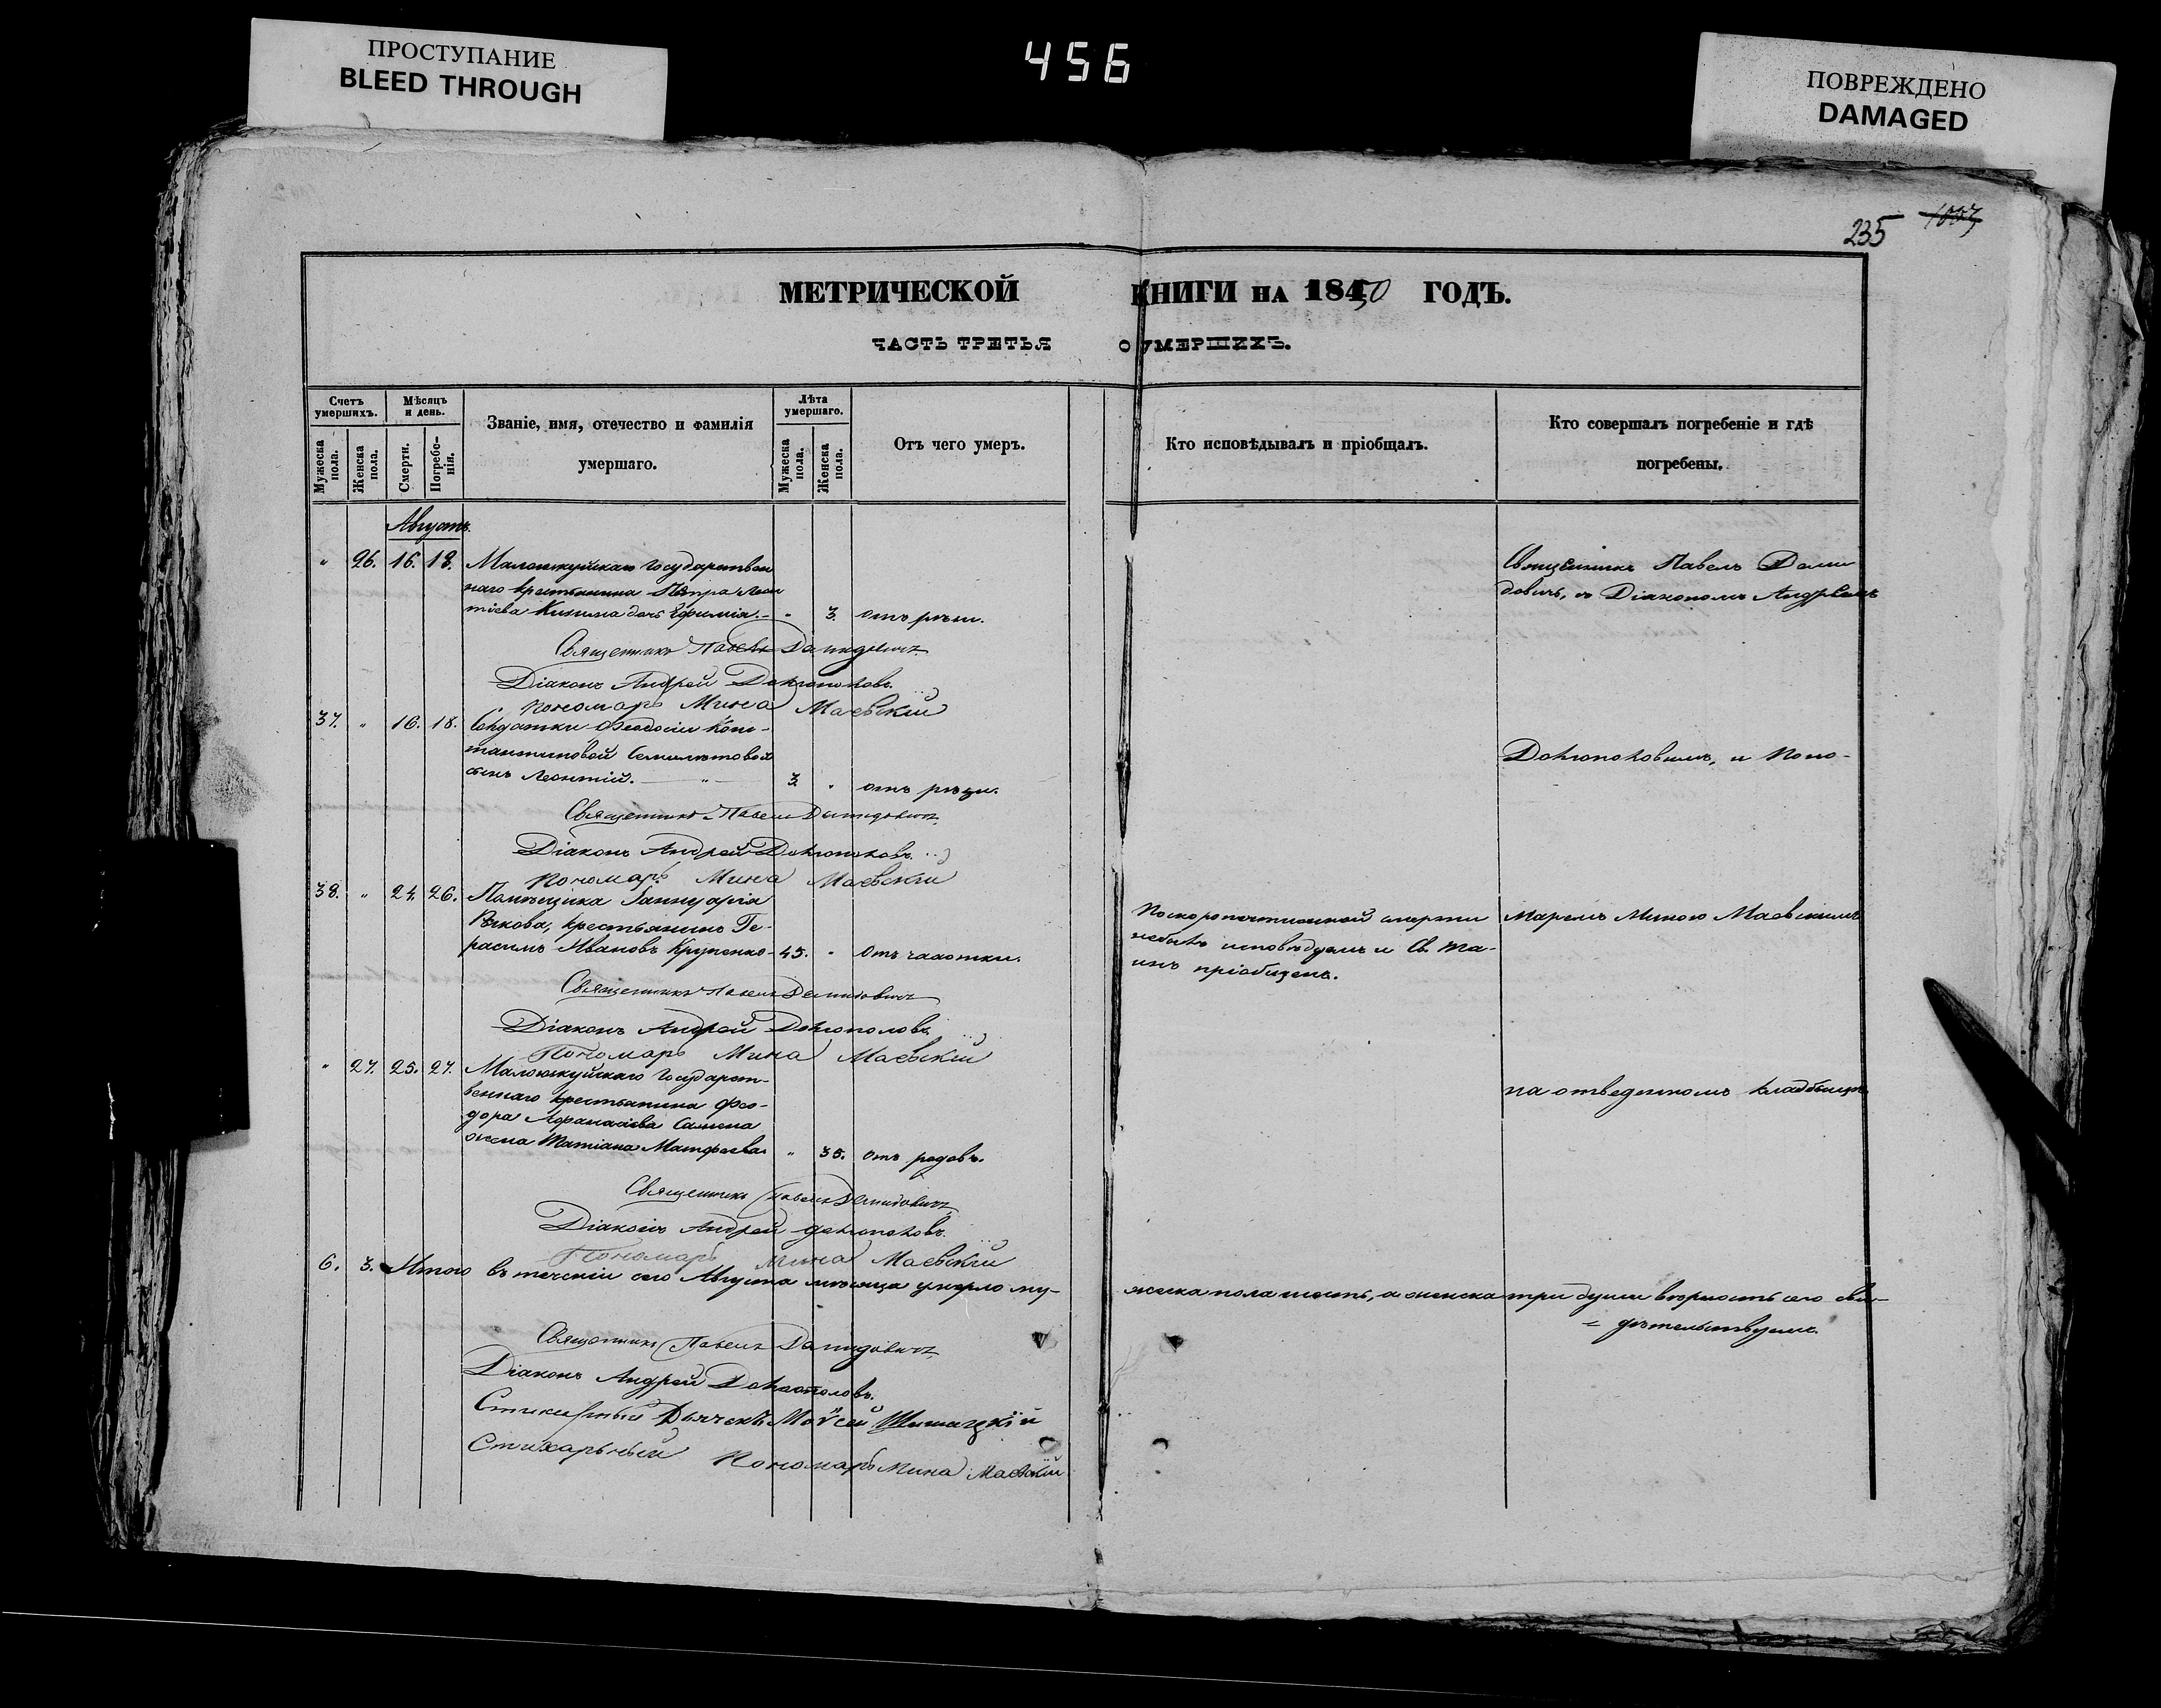 ПРОСТУПАНИЕ
BLEED THROUGH
456
ПОВРЕЖДЕНО
DAMAGED
235 1007
МЕТРИЧЕСКОЙ КНИГИ НА 18450 ГОДЪ.
ЧАСТЬ ТРЕТЬЯ О УМЕРШИХЪ.
Счетъ умершихъ.
Мужеска пола.
Женска пола.
Мѣсяцъ и день.
Смерти.
Погребенія.
Званіе, имя, отечество и фамилія
умершаго.
Лѣта умершаго.
Мужеска пола.
Женска пола.
Отъ чего умеръ.
Кто исповѣдывалъ и пріобщалъ.
Кто совершалъ погребеніе и гдѣ
погребены.
Августъ.
" 26. 16. 18. Государствен
наго крестьянина Петра Леон
тіева дочь Ефимія. " 3.
Священникъ Павелъ Деми
довичъ, съ Діакономъ Андреемъ
Священникъ Павелъ Демидовичъ
Діаконъ Андрей
Пономарь Мина Маевскій
37. " 16. 18. Солдатки Феодосіи Конс-
тантиновой
сынъ Леонтій. 3. "
и Поно-
Священникъ Павелъ Демидовичъ
Діаконъ Андрей
Пономарь Мина Маевскій
38. " 24. 26. Помѣщика Іаннуарія
крестьянинъ Ге-
расимъ Ивановъ Крупенко 45. " Отъ чахотки.
По скоропостижной смерти
небылъ исповѣдуемъ и Св. Та-
инъ пріобщенъ.
маремъ Миною Маевскимъ
Священникъ Павелъ Демидовичъ
Діаконъ Андрей
Пономарь Мина Маевскій
" 27. 25. 27. Государст-
веннаго крестьянина Фео-
дора Афанасіева
жена Татіана Матфеева " 35. Отъ родовъ.
на отведенномъ кладбищѣ
Священникъ Павелъ Демидовичъ
Діаконъ Андрей
Пономарь Мина Маевскій
6. 3. Итого въ теченіи сего Августа мѣсяца умерло му-
жеска пола шесть, а женска три души вѣрность сего сви-
дѣтельствуемъ.
Священникъ Павелъ Демидовичъ
Діаконъ Андрей
Стихарный Дьячекъ Моѵсей
Стихарный Пономарь Мина Маевскій